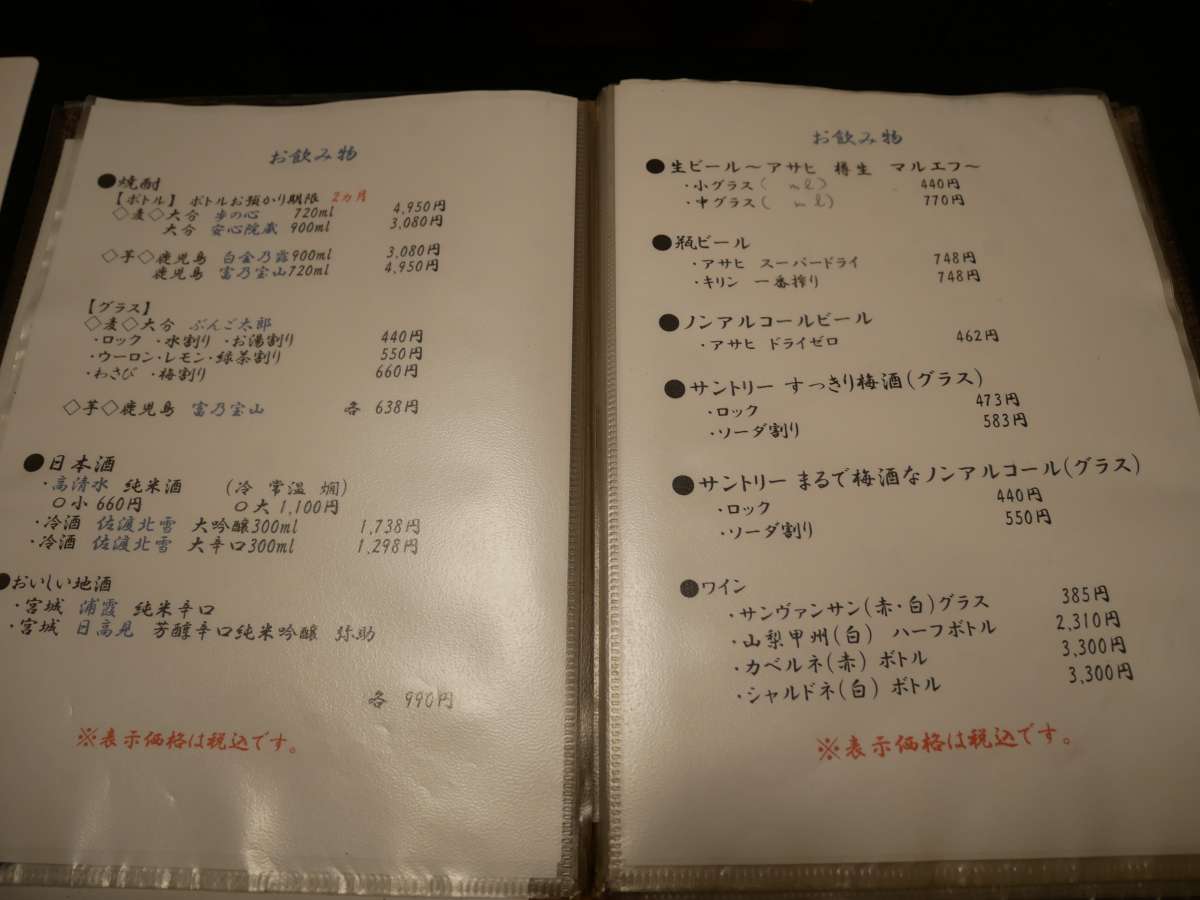 お飲み物
●焼酎
【ボトル】 ボトルお預かり期限 2カ月
◇麦◇大分 歩の心 720ml 4,950円
大分 安心院蔵 900ml 3,080円
◇芋◇鹿児島 白金乃露900ml 3,080円
鹿児島 富乃宝山720ml 4,950円
【グラス】
◇麦◇大分 ぶんご太郎
・ロック ・水割り ・お湯割り 440円
・ウーロン・レモン・緑茶割り 550円
・わさび ・梅割り 660円
◇芋◇鹿児島 富乃宝山 各 638円
●日本酒
・高清水 純米酒 (冷 常温 燗)
○小 660円 ○大 1,100円
・冷酒 佐渡北雪 大吟醸300ml 1,738円
・冷酒 佐渡北雪 大辛口300ml 1,298円
●おいしい地酒
・宮城 浦霞 純米辛口
・宮城 日高見 芳醇辛口純米吟醸 弥助
各 990円
※表示価格は税込です。
お飲み物
●生ビール～アサヒ 樽生 マルエフ～
・小グラス( ml) 440円
・中グラス( ml) 770円
●瓶ビール
・アサヒ スーパードライ 748円
・キリン 一番搾り 748円
●ノンアルコールビール
・アサヒ ドライゼロ 462円
●サントリー すっきり梅酒(グラス)
・ロック 473円
・ソーダ割り 583円
●サントリー まるで梅酒なノンアルコール(グラス)
・ロック 440円
・ソーダ割り 550円
●ワイン
・サンヴァンサン(赤・白)グラス 385円
・山梨甲州(白) ハーフボトル 2,310円
・カベルネ(赤) ボトル 3,300円
・シャルドネ(白) ボトル 3,300円
※表示価格は税込です。